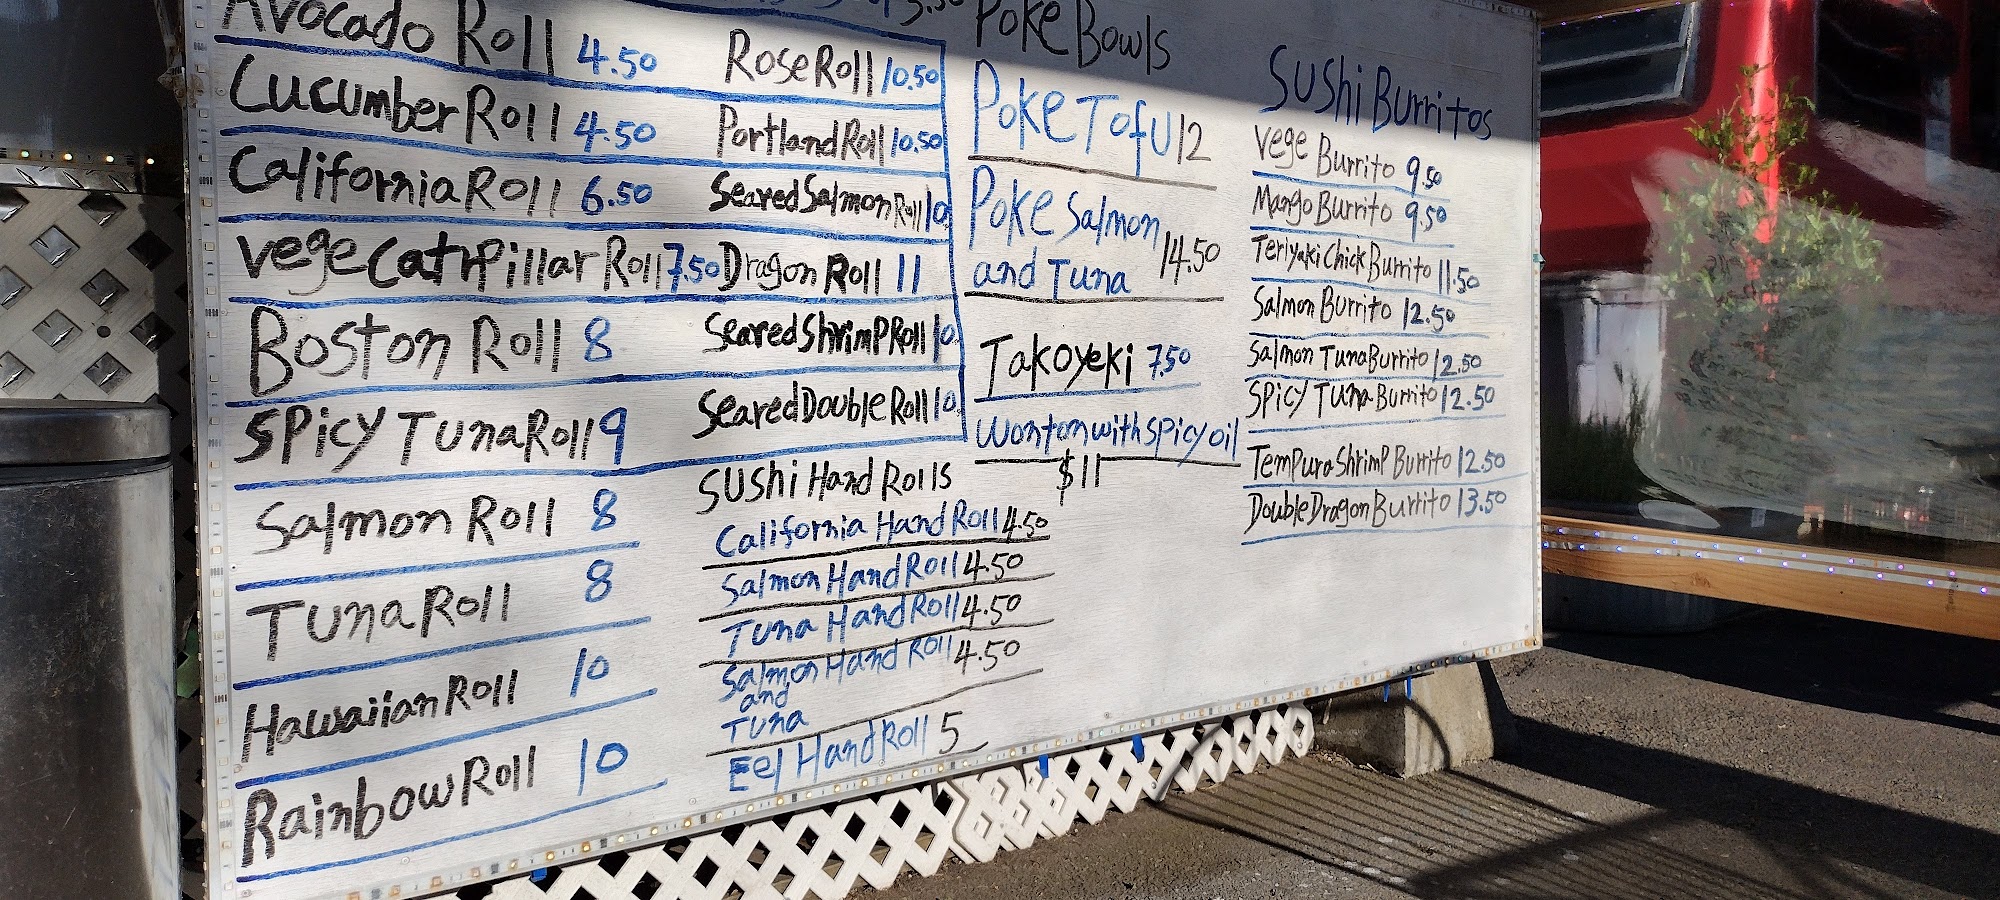 Avocado Roll 4.50
Cucumber Roll 4.50
California Roll 6.50
Vege Catrpillar Roll 7.50
Boston Roll 8
Spicy Tuna Roll 9
Salmon Roll 8
Tuna Roll 8
Hawaiian Roll 10
Rainbow Roll 10
Rose Roll 10.50
Portland Roll 10.50
Seared Salmon Roll 10
Dragon Roll 11
Seared Shrimp Roll 10
Seared Double Roll 10
Sushi Hand Rolls
California Hand Roll 4.50
Salmon Hand Roll 4.50
Tuna Hand Roll 4.50
Salmon Hand Roll 4.50
and
Tuna
Eel Hand Roll 5
Poke Bowls
Poke Tofu 12
Poke Salmon
and Tuna 14.50
Takoyeki 7.50
Wonton with spicy oil
$11
Sushi Burritos
Vege Burrito 9.50
Mango Burrito 9.50
Teriyaki Chick Burrito 11.50
Salmon Burrito 12.50
Salmon Tuna Burrito 12.50
Spicy Tuna Burrito 12.50
Tempura Shrimp Burrito 12.50
Double Dragon Burrito 13.50